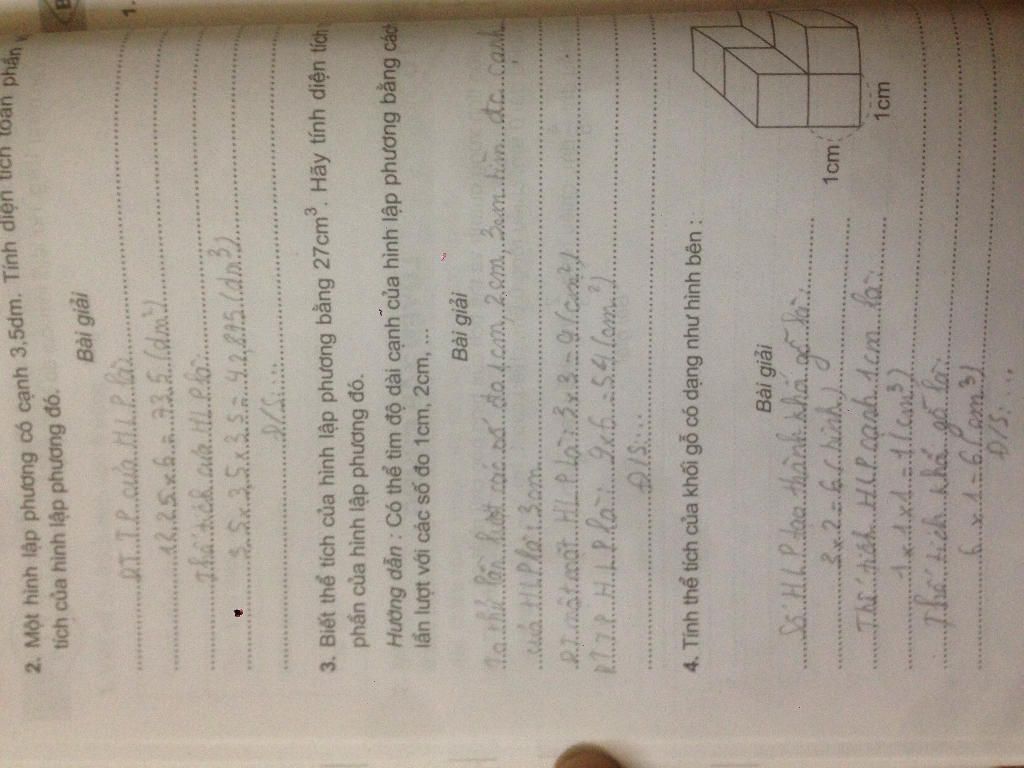 2. Một hình lập phương có cạnh 3,5dm. Tính diện tích toàn phần v
tích của hình lập phương đó.
Bài giải
DT.T.P của HLP là:
12,25 x 6 = 73,5 (dm²)
Thể tích của HLP là:
3,5 x 3,5 x 3,5 = 42,875 (dm3)
Đ/S:...
3. Biết thể tích của hình lập phương bằng 27cm³. Hãy tính diện tích
phần của hình lập phương đó.
Hướng dẫn : Có thể tìm độ dài cạnh của hình lập phương bằng cách
lần lượt với các số đo 1cm, 2cm, ...
Bài giải
Ta thử lần lượt các số đo 1cm, 2cm, 3cm tìm đc cạnh
của HLP là: 3cm
DT một mặt HLP là: 3 x 3 = 9 (cm²)
DT.T.P HLP là: 9 x 6 = 54 (cm²)
Đ/S:...
4. Tính thể tích của khối gỗ có dạng như hình bên :
Bài giải
Số HLP tạo thành khối gỗ là:
3 x 2 = 6 (hình)
Thể tích HLP cạnh 1cm là:
1 x 1 x 1 = 1 (cm3)
Thể tích khối gỗ là:
6 x 1 = 6 (cm3)
Đ/S:...
1cm
1cm
B
1.